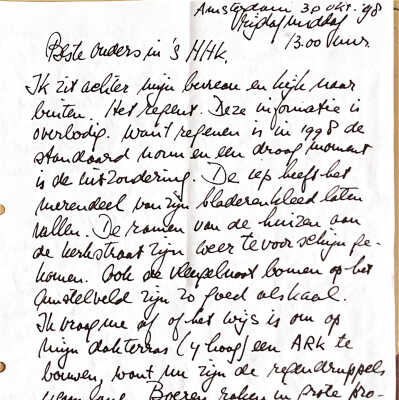 Amsterdam 30 okt. 98
Vrijdagmiddag
13.00 uur.
Beste ouders in 's HHK,
Ik zit achter mijn bureau en kijk naar
buiten. Het regent. Deze informatie is
overbodig. Want regenen is in 1998 de
standaard norm en een droog moment
is de uitzondering. De iep heeft het
merendeel van zijn bladerenkleed laten
vallen. De ramen van de huizen aan
de kerkstraat zijn weer te voorschijn ge-
komen. Ook de vleugelnoot bomen op het
Amstelveld zijn zo goed als kaal.
Ik vraag me af of het wijs is om op
mijn dakterras (4 hoog) een ARK te
bouwen, want nu zijn de regendruppels
Boeren raken in grote pro-